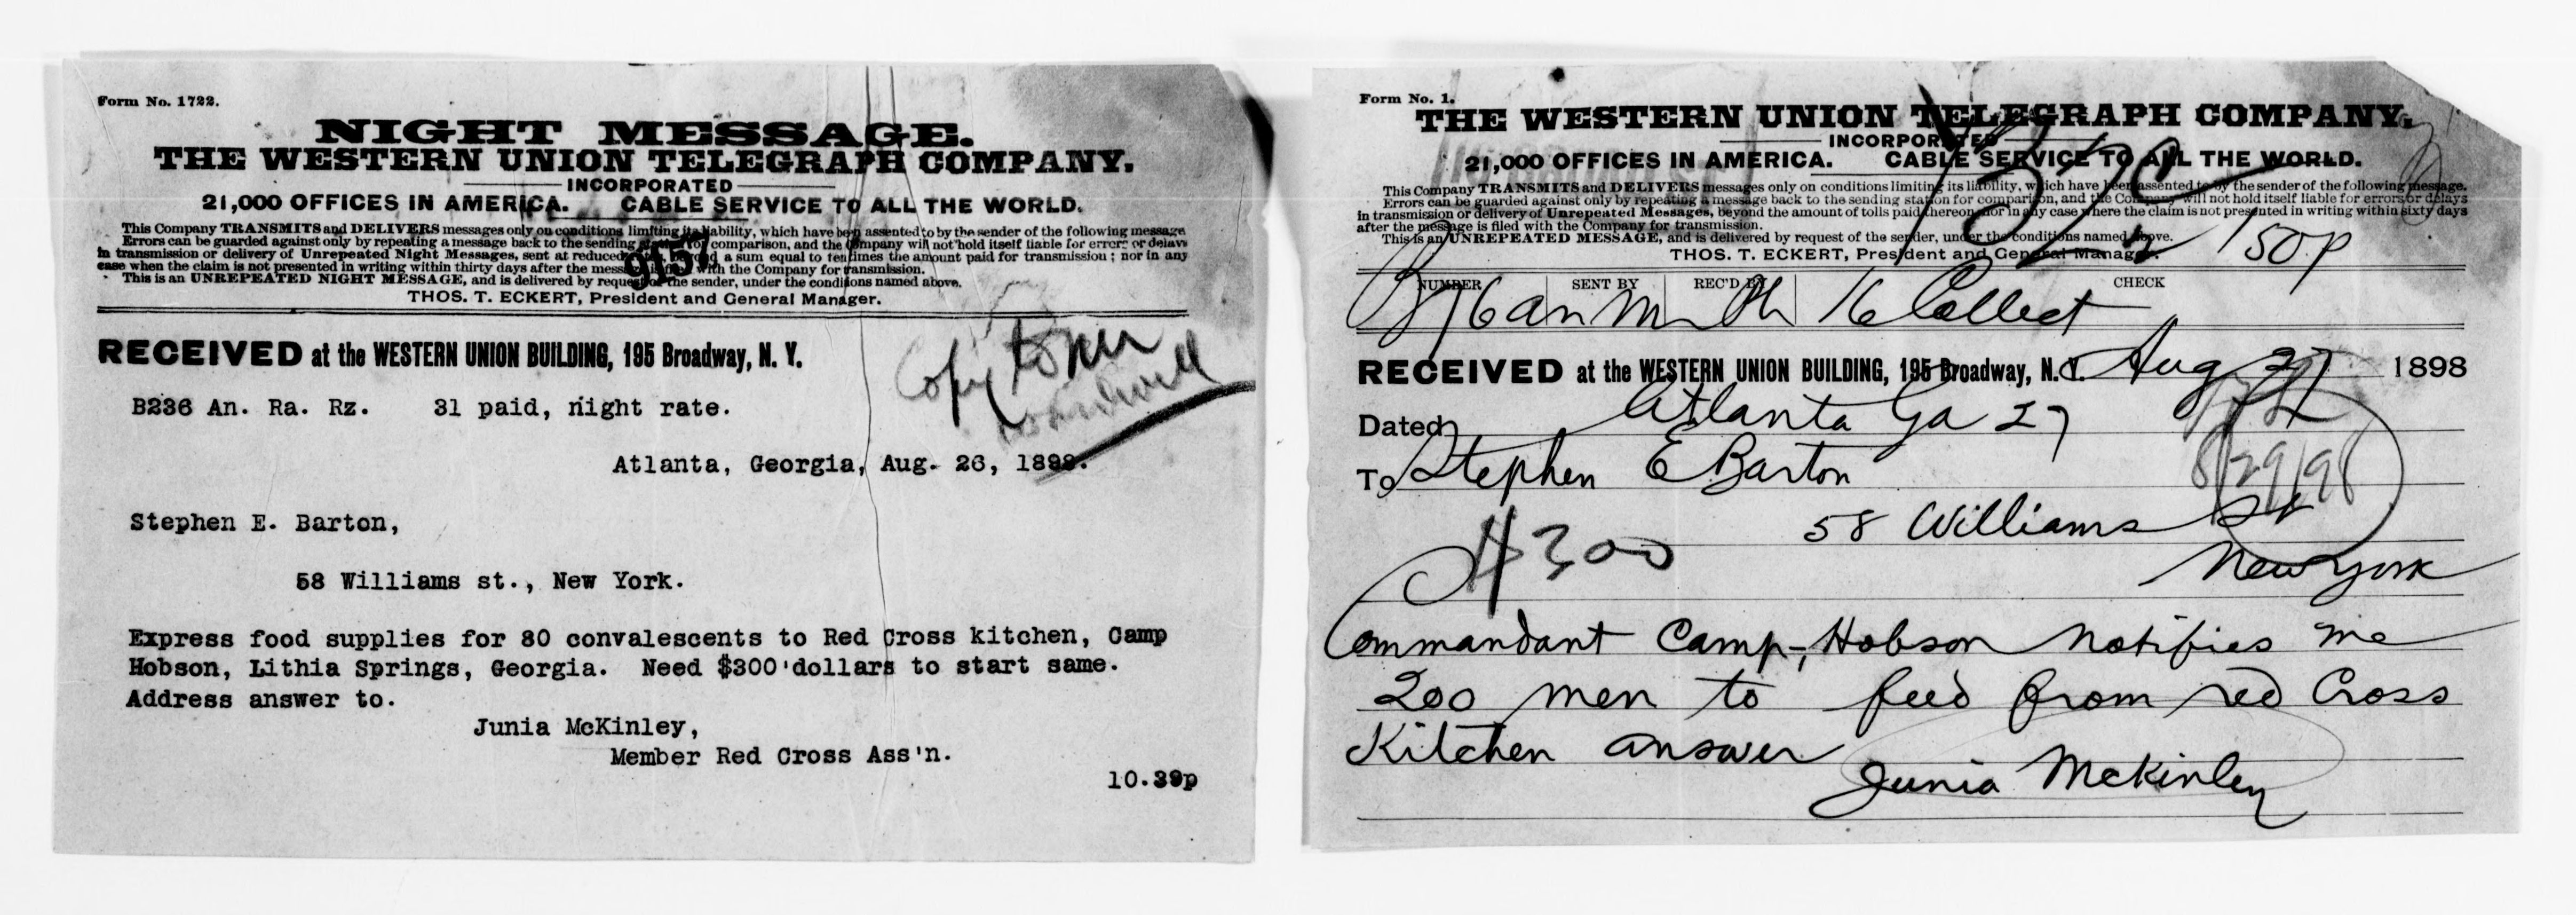 Form No. 1722.
NIGHT MESSAGE.
THE WESTERN UNION TELEGRAPH COMPANY.
INCORPORATED
21,000 OFFICES IN AMERICA. CABLE SERVICE TO ALL THE WORLD.
This Company TRANSMITS and DELIVERS messages only on conditions limiting its liability, which have been assented to by the sender of the following message
Errors can be guarded against only by repeating a message back to the sending station for comparison, and the Company will not hold itself liable for errors or delays
in transmission or delivery of Unrepeated Night Messages, sent at reduced rates, beyond a sum equal to ten times the amount paid for transmission; nor in any
case when the claim is not presented in writing within thirty days after the message is filed with the Company for transmission.
This is an UNREPEATED NIGHT MESSAGE, and is delivered by request of the sender, under the conditions named above.
THOS. T. ECKERT, President and General Manager.
957
Copy to
RECEIVED at the WESTERN UNION BUILDING, 195 Broadway, N. Y.
B236 An. Ra. Rz. 31 paid, night rate.
Atlanta, Georgia, Aug. 26, 1898.
Stephen E. Barton,
58 Williams st., New York.
Express food supplies for 80 convalescents to Red Cross kitchen, Camp
Hobson, Lithia Springs, Georgia. Need $300 dollars to start same.
Address answer to.
Junia McKinley,
Member Red Cross Ass'n.
10.39p
Form No. 1.
THE WESTERN UNION TELEGRAPH COMPANY.
INCORPORATED
21,000 OFFICES IN AMERICA. CABLE SERVICE TO ALL THE WORLD.
This Company TRANSMITS and DELIVERS messages only on conditions limiting its liability, which have been assented to by the sender of the following message.
Errors can be guarded against only by repeating a message back to the sending station for comparison, and the Company will not hold itself liable for errors or delays
in transmission or delivery of Unrepeated Messages, beyond the amount of tolls paid thereon, nor in any case where the claim is not presented in writing within sixty days
after the message is filed with the Company for transmission.
This is an UNREPEATED MESSAGE, and is delivered by request of the sender, under the conditions named above.
THOS. T. ECKERT, President and General Manager.
150p
NUMBER SENT BY REC'D BY CHECK
16 Collect
RECEIVED at the WESTERN UNION BUILDING, 195 Broadway, N.Y. Aug 27 1898
Dated Atlanta Ga 27
To Stephen E Barton
8/29/98
58 Williams St
$300
New York
Commandant Camp, Hobson notifies me
200 men to feed from red Cross
Kitchen answer
Junia McKinley